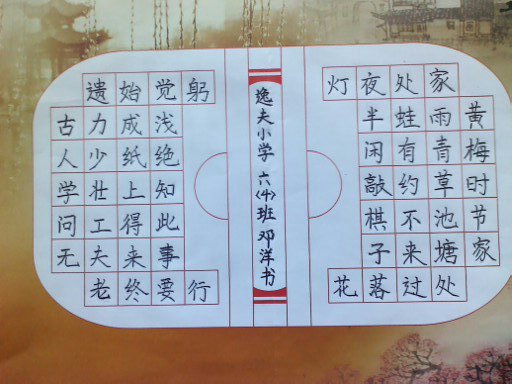 黄梅时节家
家雨青草池塘处
处蛙有约不来过
夜半闲敲棋子落
灯花
逸夫小学 六(4)班 邓洋书
古人学问无
遗力少壮工夫老
始成纸上得来终
觉浅绝知此事要
躬行